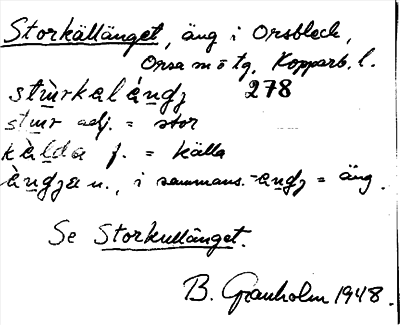 Storkällänget, äng i Orsbleck,
Orsa m ö tg, Kopparb. l.
stùrkalándz 278
stur adj. = stor
kälda f. = källa
ändza n., i sammans. -andz = äng.
Se Storkullänget.
B. Granholm 1948.